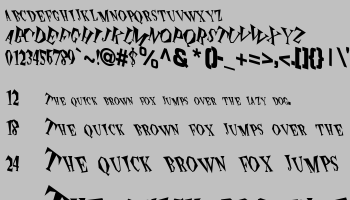 ABCDEFGHIJKLMNOPQRSTUVWXYZ
ABCDEFGHIJKLMNOPQRSTUVWXYZ
0123456789`~!@#$%^&*()-_+=>,<.[]{}|\
12 The quick brown fox jumps over the lazy dog.
18 The quick brown fox jumps over the
24 The quick brown fox jumps